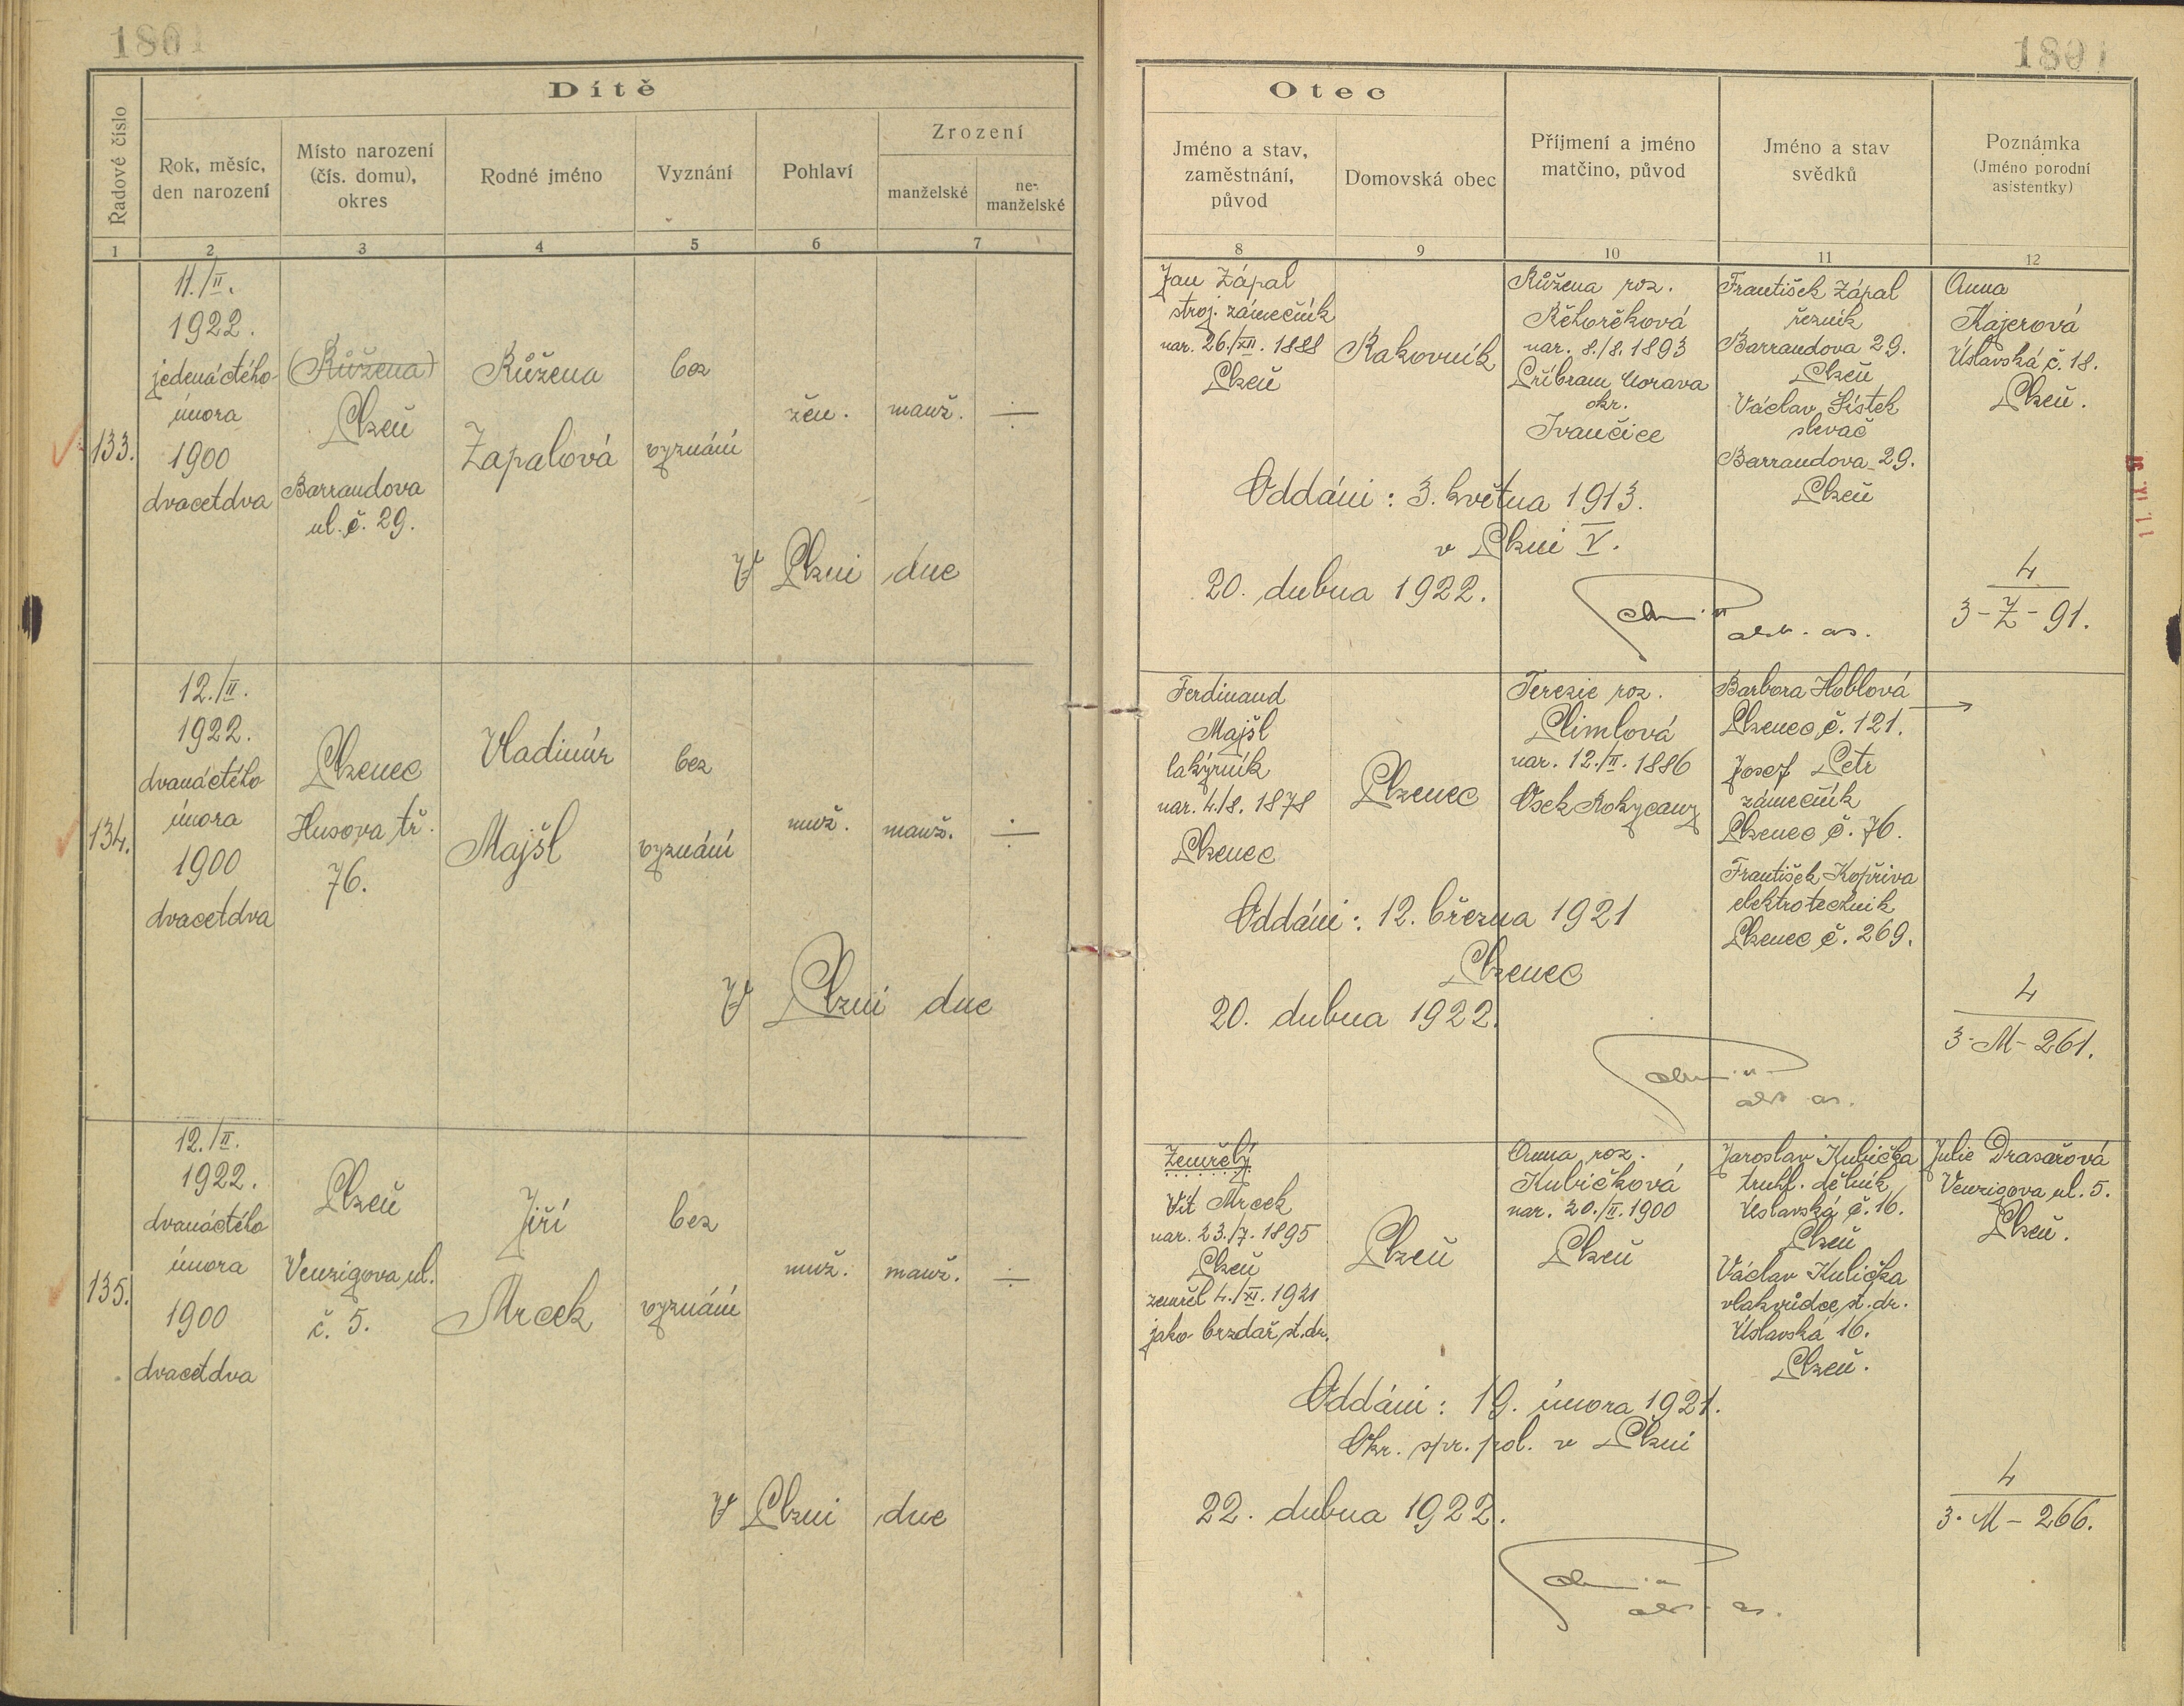 1801
Dítě
Řadové číslo
Rok, měsíc,
den narození
Místo narození
(čís. domu),
okres
Rodné jméno
Vyznání
Pohlaví
Zrození
manželské
ne-
manželské
1
2
3
4
5
6
7
133.
11./II.
1922.
jedenáctého
února
1900
dvacetdva
(Růžena)
Plzeň
Barrandova
ul. č. 29.
Růžena
Zápalová
bez
vyznání
žen.
manž.
÷
V Plzni dne
134.
12./II.
1922.
dvanáctého
února
1900
dvacetdva
Plzenec
Husova tř.
76.
Vladimír
Majšl
bez
vyznání
muž.
manž.
÷
V Plzni dne
135.
12./II.
1922.
dvanáctého
února
1900
dvacetdva
Plzeň
Venzigova ul.
č. 5.
Jiří
Mrcek
bez
vyznání
muž.
manž.
÷
V Plzni dne
1801
Otec
Jméno a stav,
zaměstnání,
původ
Domovská obec
Příjmení a jméno
matčino, původ
Jméno a stav
svědků
Poznámka
(Jméno porodní
asistentky)
8
9
10
11
12
Jan Zápal
stroj. zámečník
nar. 26./XII. 1888
Plzeň
Rakovník
Růžena roz.
Řehořková
nar. 8./8. 1893
Příbram Morava
okr.
Ivančice
František Zápal
řezník
Barrandova 29.
Plzeň
Václav Šístek
slevač
Barrandova 29.
Plzeň
Anna
Kajerová
Úslavská č. 18.
Plzeň.
Oddáni: 3. května 1913.
v Plzni V.
20. dubna 1922.
4
3-Z-91.
Ferdinand
Majšl
lakýrník
nar. 4./8. 1878
Plzenec
Plzenec
Terezie roz.
Plimlová
nar. 12./II. 1886
Osek Rokycany
Barbora Hoblová
Plzenec č. 121.
Josef Petr
zámečník
Plzenec č. 76.
František Kopřiva
elektrotechnik
Plzenec č. 269.
Oddáni: 12. března 1921
Plzenec
20. dubna 1922.
4
3-M-261.
Zemřelý
Vít Mrcek
nar. 23./7. 1895
Plzeň
zemřel 4./XI. 1921
jako brzdař st. dr.
Plzeň
Anna roz.
Kubičková
nar. 20./II. 1900
Plzeň
Jaroslav Kubička
truhl. dělník
Úslavská č. 16.
Plzeň
Václav Kulička
vlakvůdce st. dr.
Úslavská 16.
Plzeň.
Julie Drasařová
Venzigova ul. 5.
Plzeň.
Oddáni: 19. února 1921.
Okr. spr. pol. v Plzni
22. dubna 1922.
4
3-M-266.